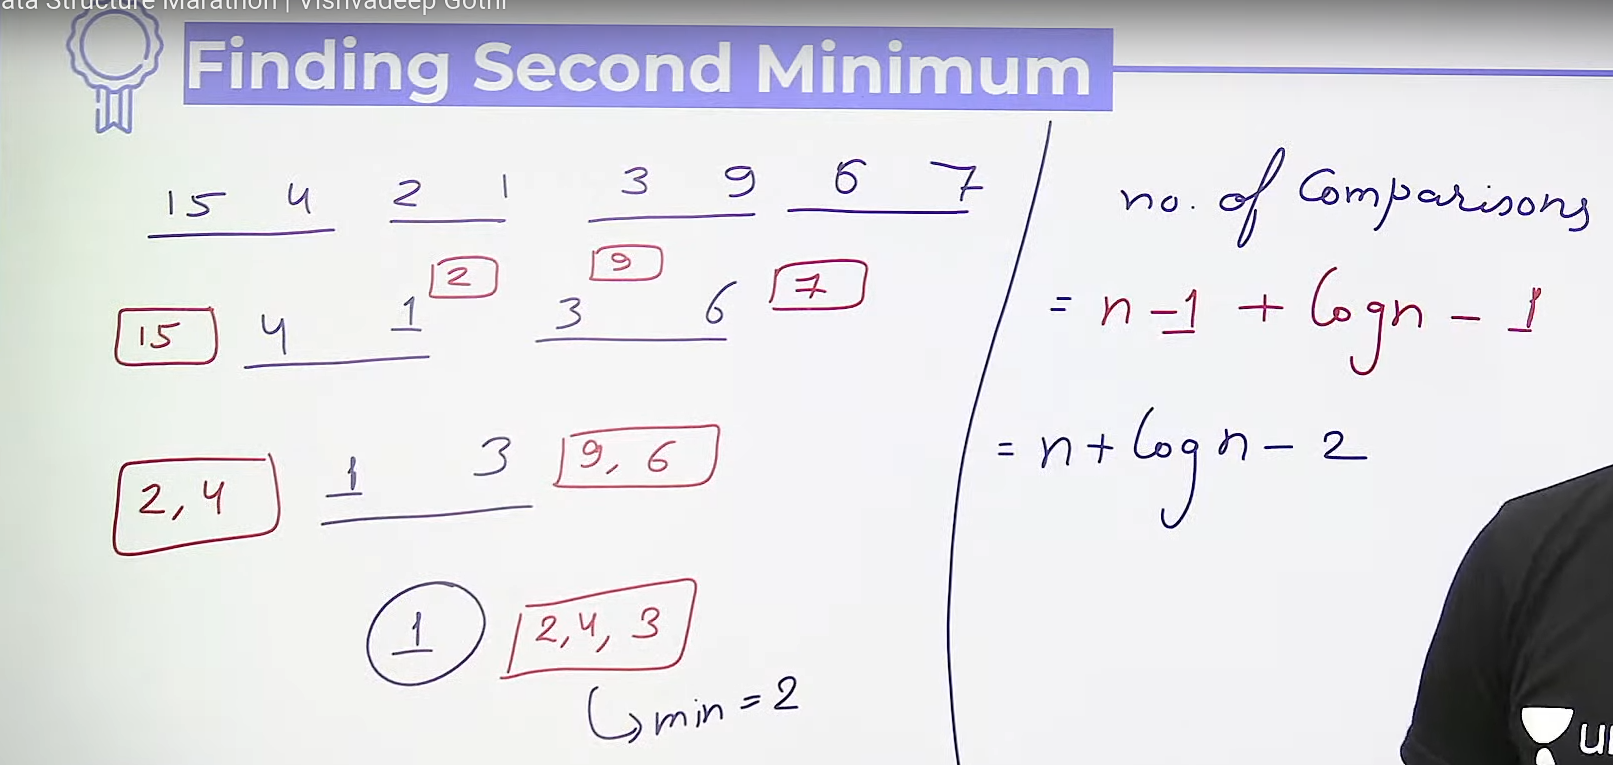 ata Structure Marathon | Vishvadeep Gothi
Finding Second Minimum
15 4 2 1 3 9 6 7
15 4 1 2 3 9 6 7
2, 4 1 3 9, 6
1 2, 4, 3
min = 2
no. of Comparisons
= n - 1 + logn - 1
= n + logn - 2